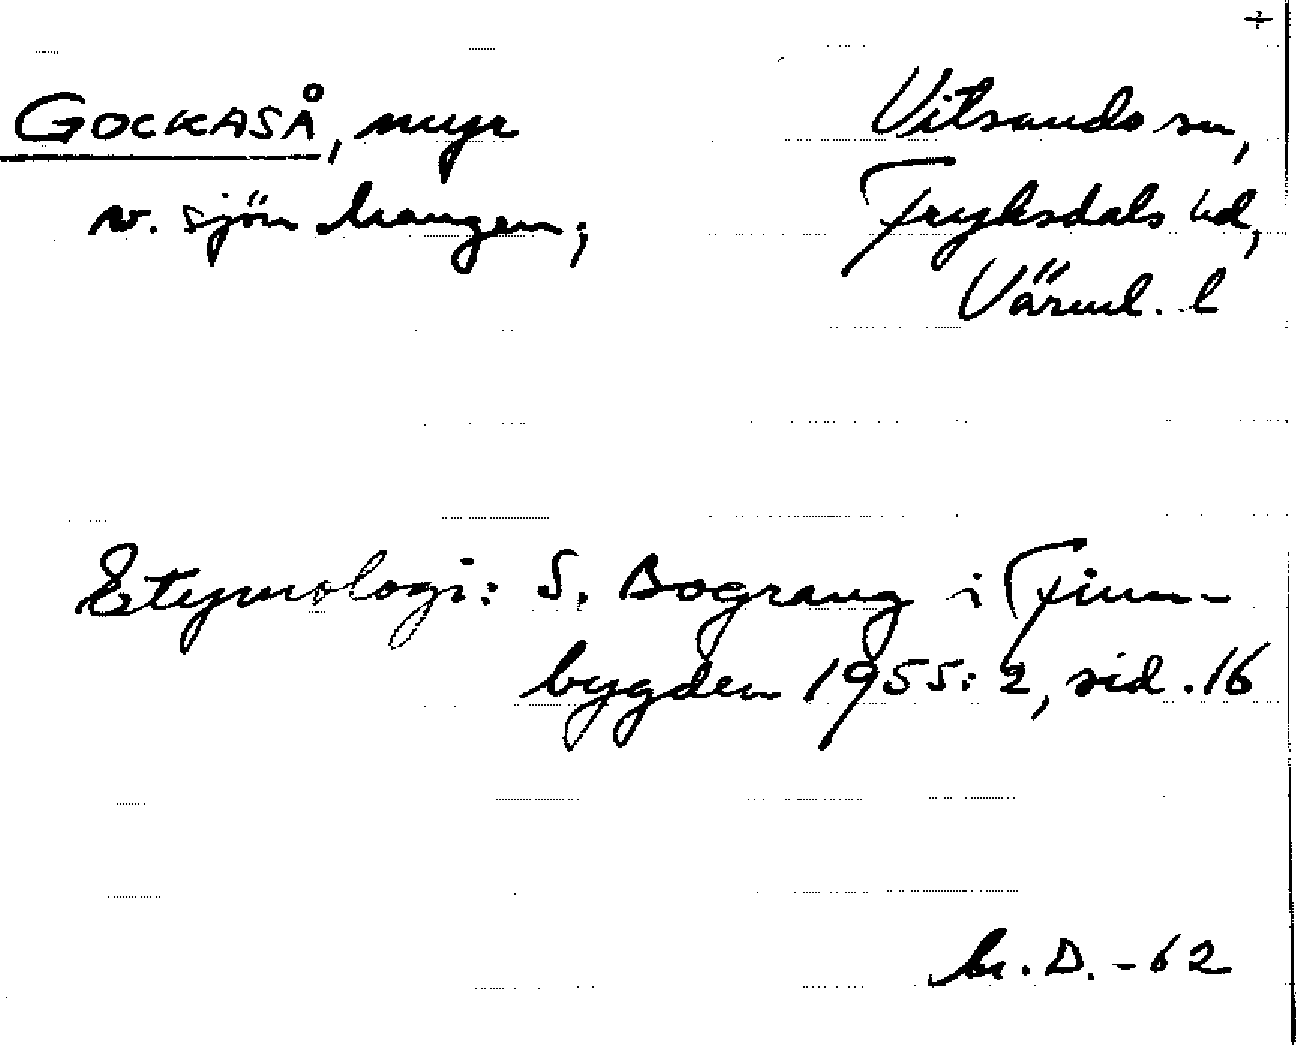 GOCKASÅ, myr
v. sjön Mangen;
Vitsands sn,
Fryksdals hd,
Värml. l
Etymologi: S. Bograng i Finn-
bygden 1955: 2, sid. 16
M. D. - 62